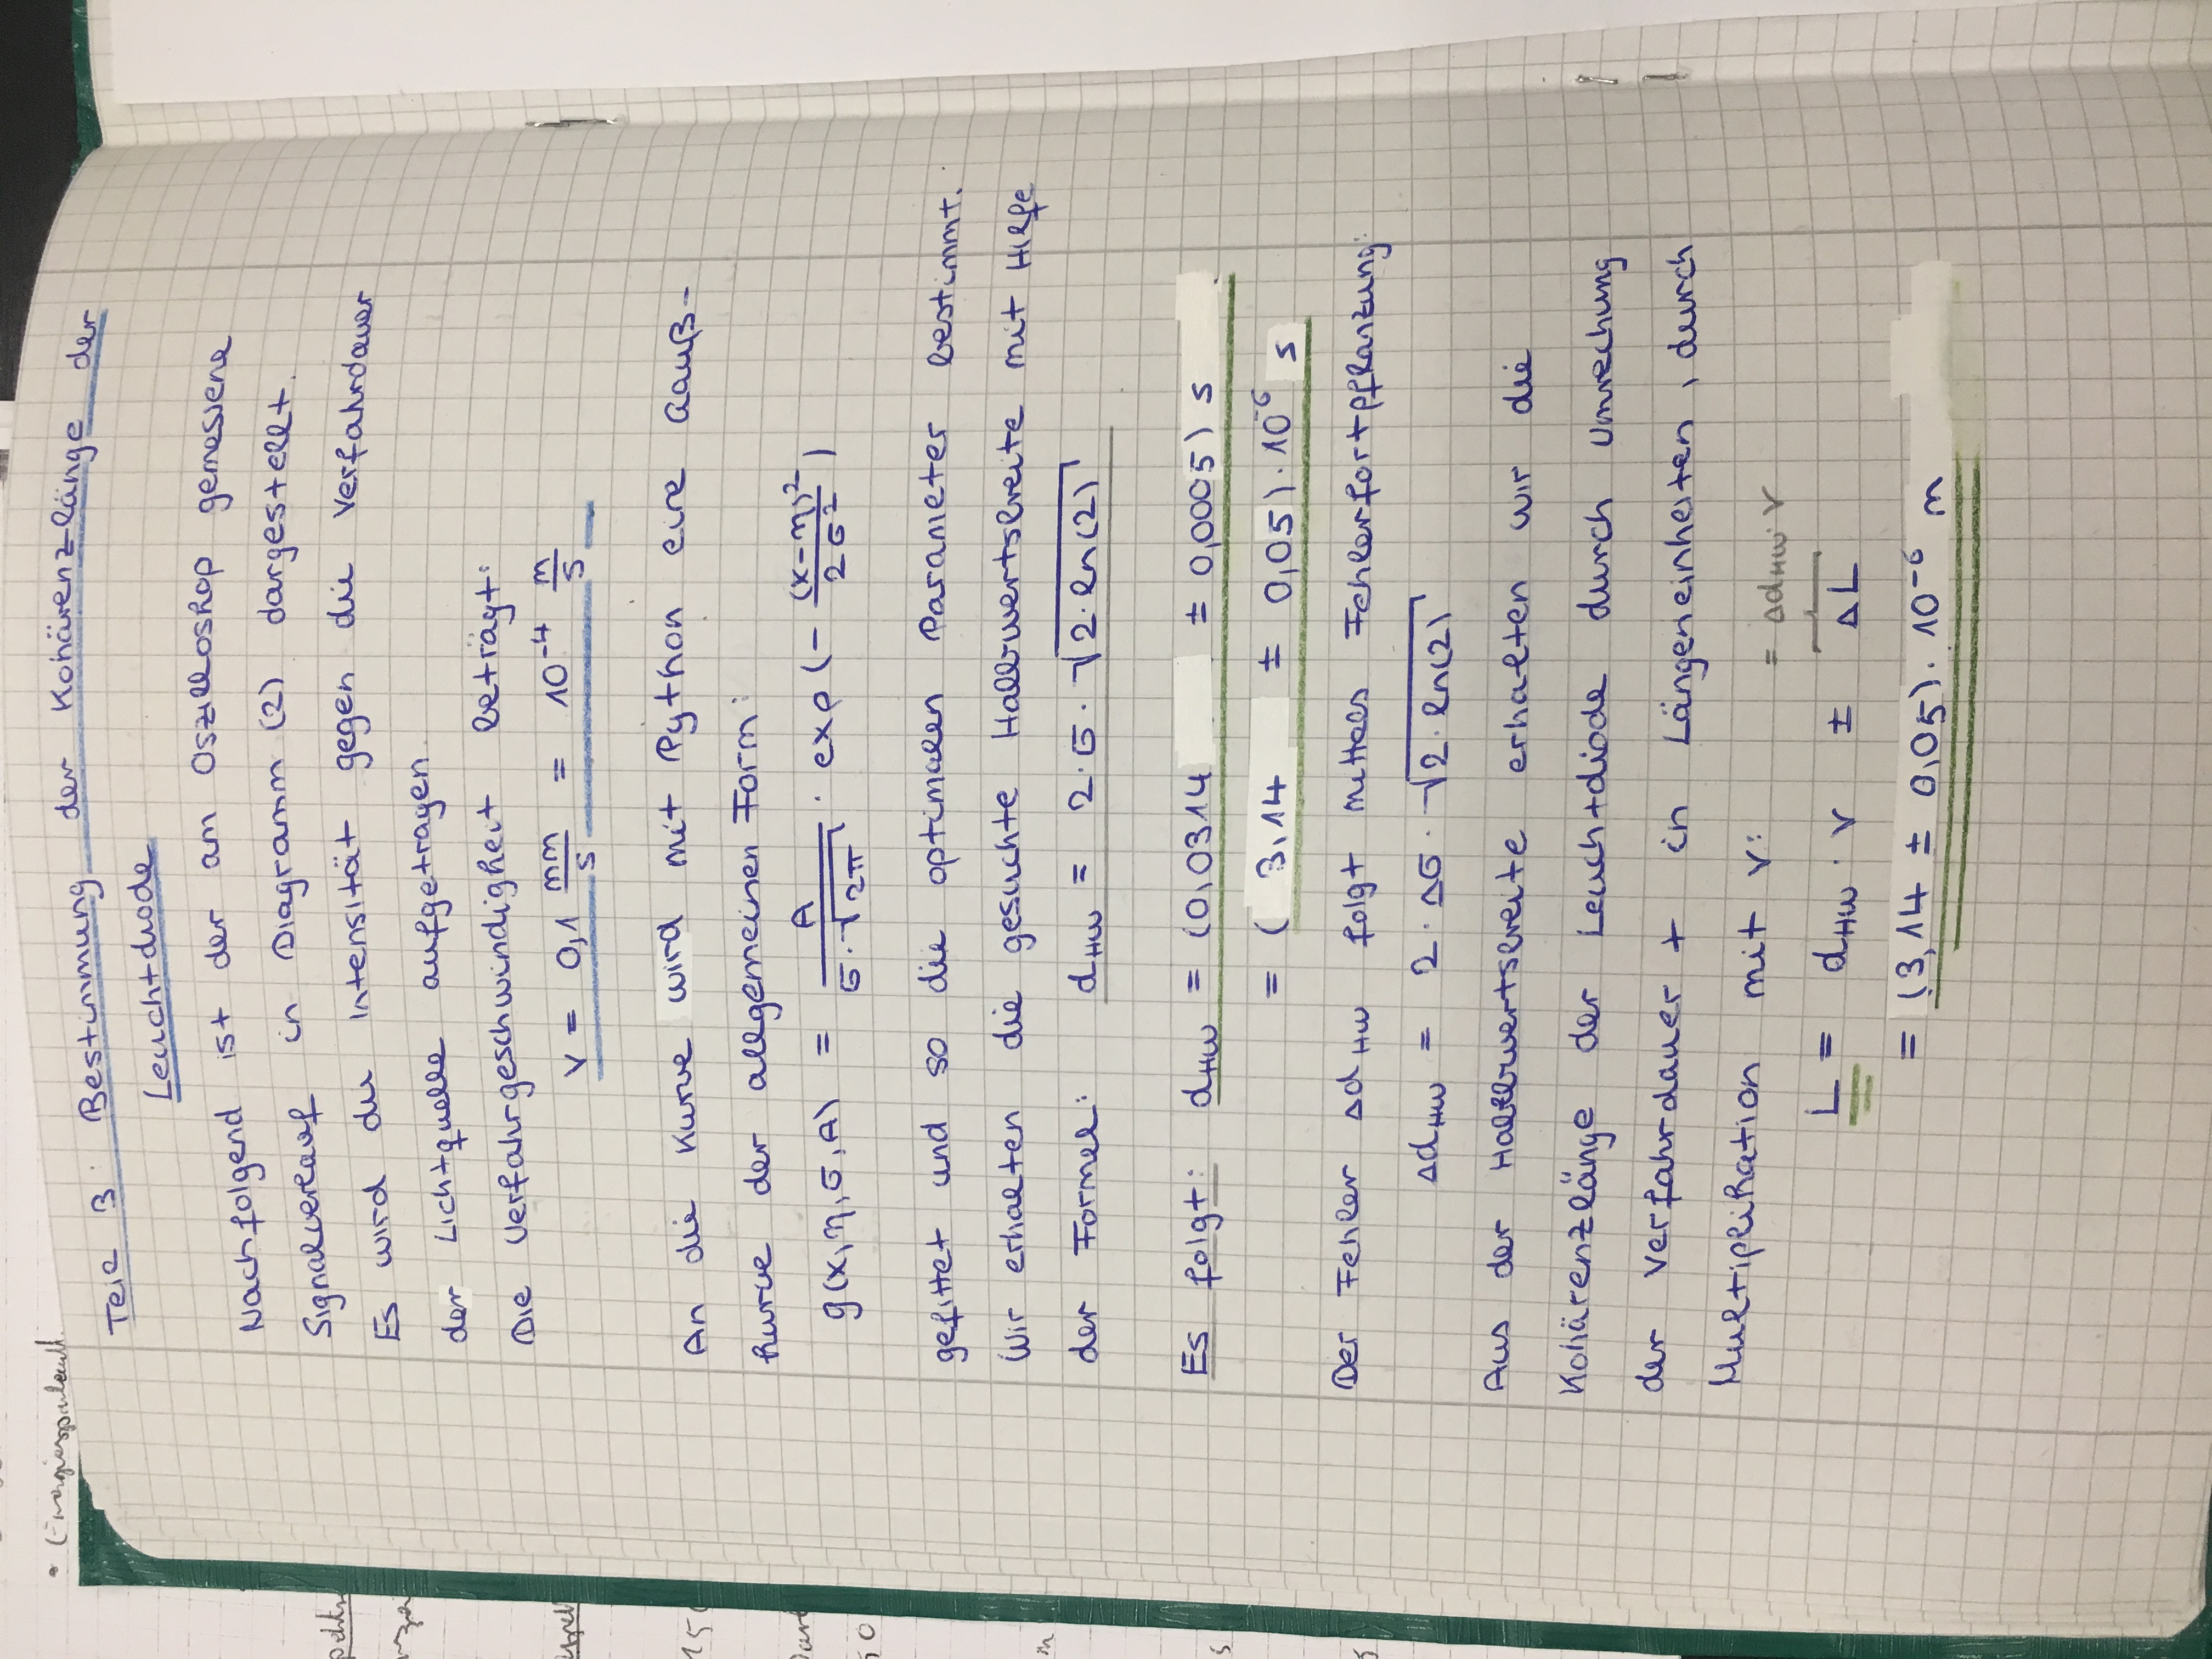 Teil 3: Bestimmung der Kohärenzlänge der
Leuchtdiode
Nachfolgend ist der am Oszilloskop gemessene
Signalverlauf in Diagramm (2) dargestellt.
Es wird die Intensität gegen die Verfahrdauer
der Lichtquelle aufgetragen.
Die Verfahrgeschwindigkeit beträgt:
v = 0,1 mm/s = 10⁻⁴ m/s
An die Kurve wird mit Python eine Gauß-
kurve der allgemeinen Form:
g(x, η, σ, A) = A/(σ·√(2π)) · exp(- (x-η)²/(2σ²))
gefittet und so die optimalen Parameter bestimmt.
Wir erhalten die gesuchte Halbwertsbreite mit Hilfe
der Formel: d_HW = 2·σ·√(2·ln(2))
Es folgt: d_HW = (0,0314 ± 0,0005) s
= (3,14 ± 0,05)·10⁻⁶ s
Der Fehler Δd_HW folgt mittels Fehlerfortpflanzung:
Δd_HW = 2·Δσ·√(2·ln(2))
Aus der Halbwertsbreite erhalten wir die
Kohärenzlänge der Leuchtdiode durch Umrechung
der Verfahrdauer t in Längeneinheiten, durch
Multiplikation mit v:
= Δd_HW·v
L = d_HW · v ± ΔL
= (3,14 ± 0,05)·10⁻⁶ m